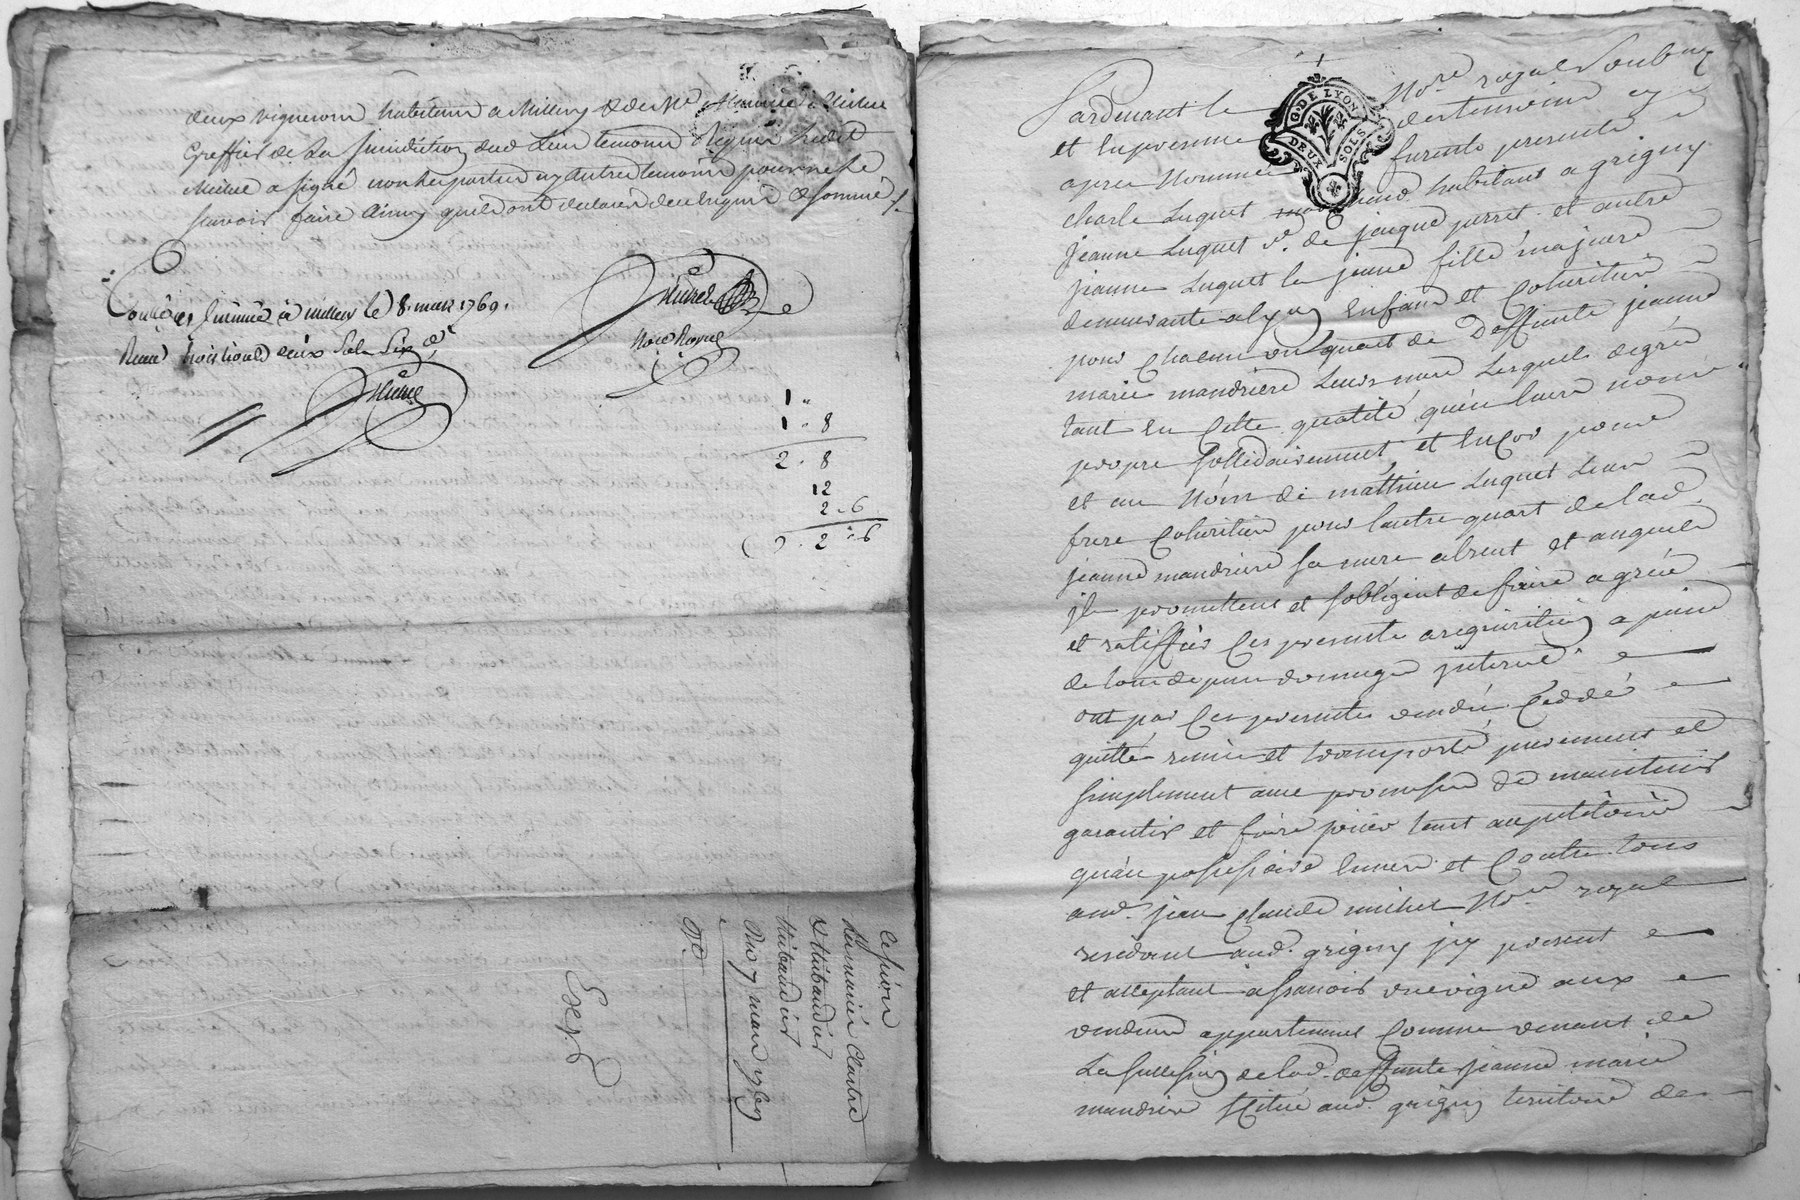 deux vignerons habitans a Millery & de Me
greffier de la juridiction dud. lieu temoins requis led.
a signé non les parties ny autre temoin pour ne le
scavoir faire ainsy quils ont declaré de ce enquis & sommé
Controllé à millery le 8. mars 1769.
Receu trois livres deux sols six d.
Michel
Nore Royal
Michel
1 "
1 . 8
2 . 8
12
2 . 6
3 . 2 . 6
Cession
Clartre
Thibaudier
Thibaudier
Du 7 mars 1769
Exp.
Pardevant le Nore. royal soubz.
et en presence des temoins cy
apres nommés furent presents
G. DE LYON
DEUX SOLS
charle Luquet habitans a grigny
jeanne Luquet ve. de jacque jarret et autre
jeanne Luquet la jeune fille majeure
demeurante a lyon enfans et coheritiers
pour chacun un quart de deffunte jeanne
marie mandrière leur mere lesquels de gré
tant en cette qualité qu'en leurs noms
propre sollidairement et encor pour
et au nom de mathieu Luquet leur
frere coheritier pour l'autre quart de lad.
jeanne mandrière sa mere absent et auquel
ils promettent et sobligent de faire agréé
et ratiffier ces presentes a requisition a peine
de tous depens domage interest
ont par ces presentes vendu ceddé
quitté remis et transporté purement et
simplement avec promesse de maintenir
garantir et faire jouir tant au petitoire
qu'au possessoire envers et contre tous
aud. jean Claude michel Nore. royal
residant aud. grigny icy present
et acceptant assavoir une vigne aux
vendeurs appartenant comme venant de
la succession de lad. deffunte jeanne marie
mandrière scitué aud. grigny territoire de